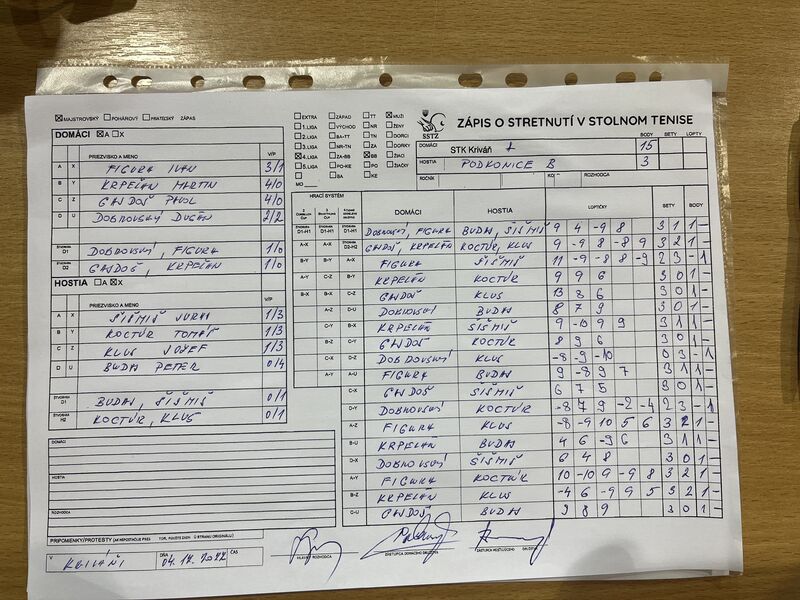 MAJSTROVSKÝ POHÁROVÝ PRIATEĽSKÝ ZÁPAS
DOMÁCI A X
PRIEZVISKO A MENO V/P
A X FIGURA IVAN 3/1
B Y KRPEĽAN MARTIN 4/0
C Z GAJDOŠ PAVOL 4/0
D U DOBROVSKÝ DUŠAN 2/2
ŠTVORHRA D1 DOBROVSKÝ, FIGURA 1/0
ŠTVORHRA D2 GAJDOŠ, KRPEĽAN 1/0
HOSTIA A X
PRIEZVISKO A MENO V/P
A X ŠIŠMIŠ JURAJ 1/3
B Y KOCTÚR TOMÁŠ 1/3
C Z KLUS JOZEF 1/3
D U BUDAJ PETER 0/4
BUDAJ, ŠIŠMIŠ 0/1
ŠTVORHRA H2 KOCTÚR, KLUS 0/1
DOMÁCI
HOSTIA
ROZHODCA
PRIPOMIENKY/PROTESTY
V KRIVÁNI DŇA 04.12.2022 ČAS
EXTRA ZÁPAD TT MUŽI
1. LIGA VÝCHOD NR ŽENY
2. LIGA BA-TT TN DORCI
3. LIGA NR-TN ZA DORKY
4. LIGA ZA-BB BB ŽIACI
5. LIGA PO-KE PO ŽIAČKY
BA KE
MO
SSTZ
ZÁPIS O STRETNUTÍ V STOLNOM TENISE
BODY SETY LOPTY
DOMÁCI STK Kriváň A 15
HOSTIA PODKONICE B 3
ROČNÍK KOLO ROZHODCA
HRACÍ SYSTÉM
DOMÁCI HOSTIA LOPTIČKY SETY BODY
D1-H1 D1-H1 D1-H1 DOBROVSKÝ, FIGURA BUDAJ, ŠIŠMIŠ 9 4 -9 8 3 1 1 -
A-X A-X D2-H2 GAJDOŠ, KRPEĽAN KOCTÚR, KLUS 9 -9 8 -8 9 3 2 1 -
B-Y B-Y A-X FIGURA ŠIŠMIŠ 11 -9 -8 8 -9 2 3 - 1
A-Y C-Z B-Y KRPEĽAN KOCTÚR 9 9 6 3 0 1 -
B-X B-X C-Z GAJDOŠ KLUS 13 8 6 3 0 1 -
A-Z D-U DOBROVSKÝ BUDAJ 8 7 9 3 0 1 -
C-Y B-X KRPEĽAN ŠIŠMIŠ 9 -10 9 9 3 1 1 -
B-Z C-Y GAJDOŠ KOCTÚR 8 9 6 3 0 1 -
C-X D-Z DOBROVSKÝ KLUS -8 -9 -10 0 3 - 1
A-Y A-U FIGURA BUDAJ 9 -8 9 7 3 1 1 -
C-X GAJDOŠ ŠIŠMIŠ 6 7 5 3 0 1 -
D-Y DOBROVSKÝ KOCTÚR -8 7 9 -2 -4 2 3 - 1
A-Z FIGURA KLUS -8 -9 10 5 6 3 2 1 -
B-U KRPEĽAN BUDAJ 4 6 -9 6 3 1 1 -
D-X DOBROVSKÝ ŠIŠMIŠ 6 4 8 3 0 1 -
A-Y FIGURA KOCTÚR 10 -10 9 -9 8 3 2 1 -
B-Z KRPEĽAN KLUS -4 6 -9 9 5 3 2 1 -
C-U GAJDOŠ BUDAJ 9 8 9 3 0 1 -
HLAVNÝ ROZHODCA
ZÁSTUPCA DOMÁCEHO DRUŽSTVA
ZÁSTUPCA HOSŤUJÚCEHO DRUŽSTVA